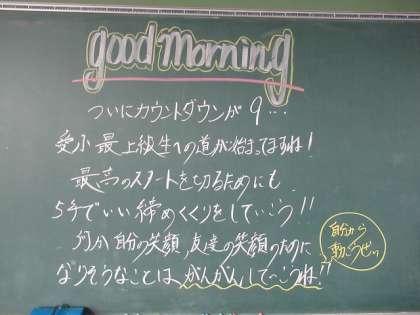 good morning
ついにカウントダウンが9…
受小最上級生への道が始まってますね!
最高のスタートを切るためにも
5年でいい締めくくりをしていこう!!
自分の笑顔、友達の笑顔のために
なりそうなことは、がんがんしていこうね!!
自分から
動こうぜぃ